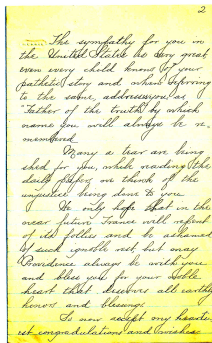 2
The sympathy for you in
the United States is very great
even every child knows of your
pathetic story and when referring
to the same, addresses you, as
Father of the truth by which
name you will always be re-
membered
Many a tear are being
shed for you, while reading the
daily paper we think of the
unjustice being done to you.
We only hope that in the
near future France will repent
of its follies and be ashamed
of such ignoble act but may
Providence always be with you
and bless you for your noble
heart that deserves all earthly
honors and blessings.
So now accept my heart-
est congradulations and wishes